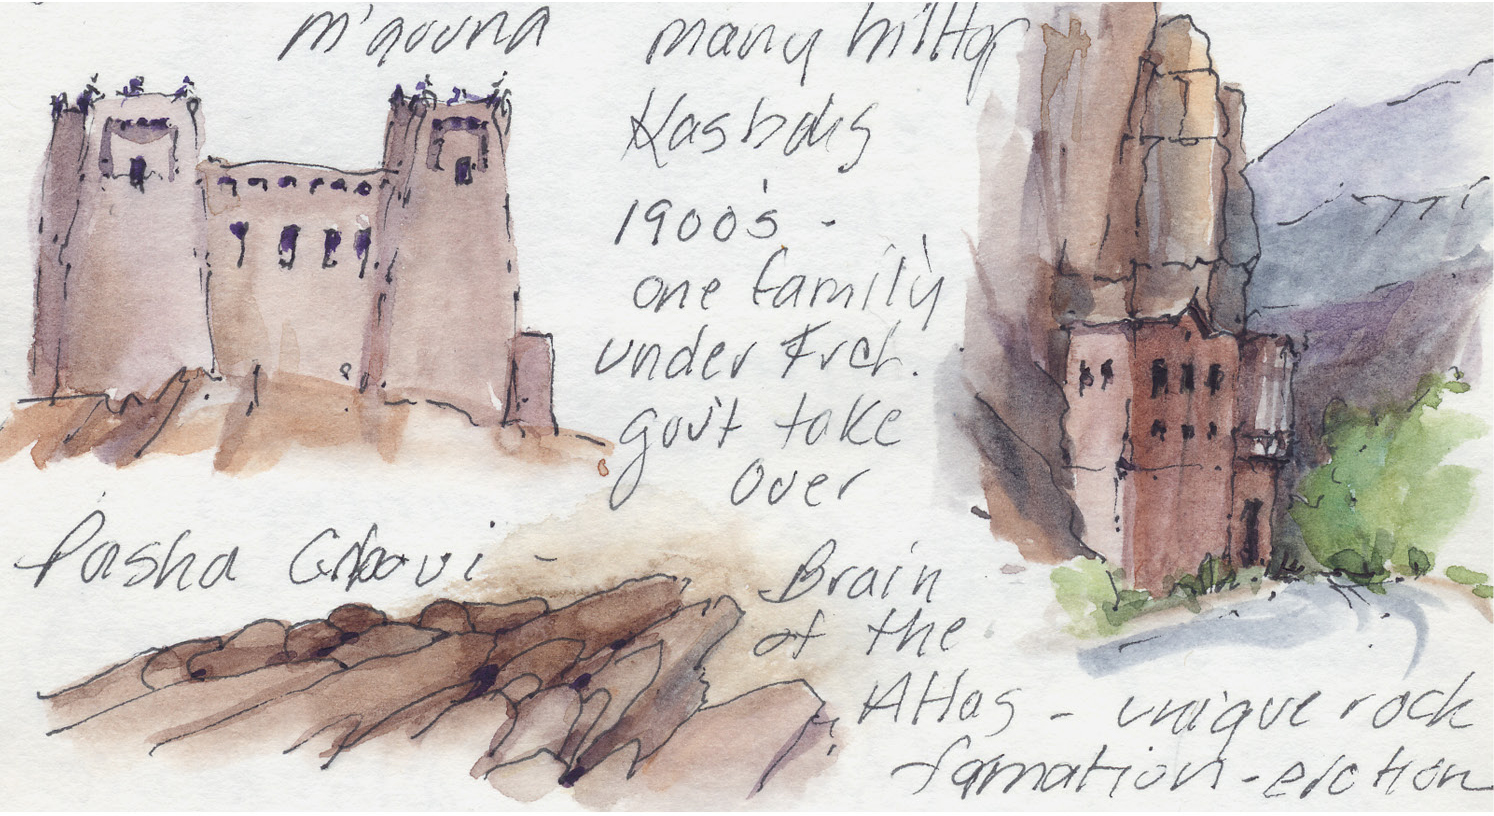 m'gouna
many hilltop
Kasbahs
1900's -
one family
under Frch.
gov't take
over
Pasha
Brain
of the
Atlas - unique rock
formation -